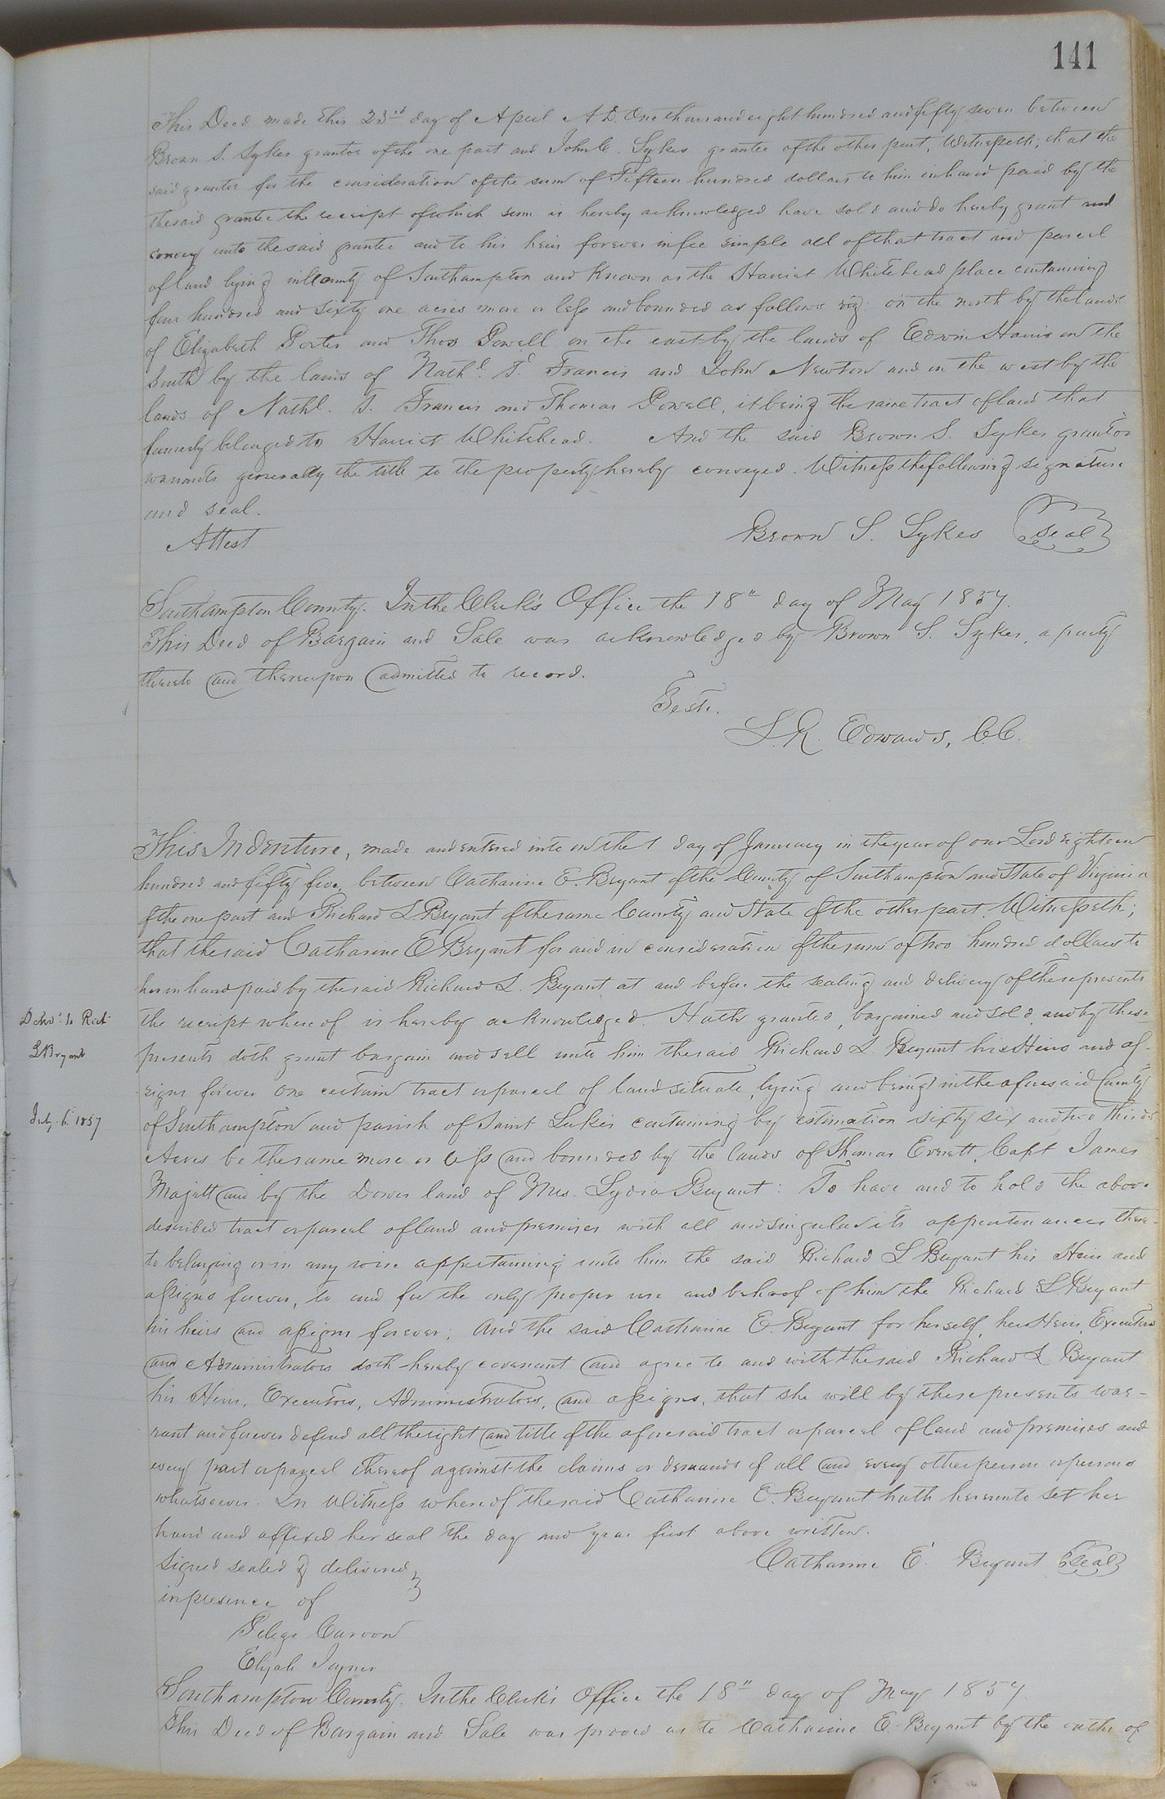 141
This Deed made this 23rd day of April A.D. One thousand eight hundred and fifty seven between
Brown S. Sykes grantor of the one part and John C. Sykes grantee of the other part, Witnesseth, that the
said grantor for the consideration of the sum of Fifteen hundred dollars to him in hand paid by the
the said grantee the receipt of which sum is hereby acknowledged have sold and do hereby grant and
convey unto the said grantee and to his heirs forever in fee simple all of that tract and parcel
of land lying in County of Southampton and known as the Harriet Whitehead place containing
four hundred and sixty one acres more or less and bounded as follows viz: on the north by the lands
of Elizabeth Porter and Thos Powell on the east by the lands of Edwin Harris on the
South by the lands of Nathl. T. Francis and John Newton and on the west by the
lands of Nathl. T. Francis and Thomas Powell, it being the same tract of land that
formerly belonged to Harriet Whitehead. And the said Brown S. Sykes grantor
warrants generally the title to the property hereby conveyed. Witness the following signature
and seal.
Attest Brown S. Sykes Seal
Southampton County. In the Clerk's Office the 18th day of May 1857.
This Deed of Bargain and Sale was acknowledged by Brown S. Sykes, a party
thereto and thereupon admitted to record.
Teste.
L. R. Edwards, C.C.
This Indenture, made and entered into on the 1 day of January in the year of our Lord eighteen
hundred and fifty five, between Catharine E. Bryant of the County of Southampton and State of Virginia
of the one part and Richard L Bryant of the same County and State of the other part. Witnesseth;
that the said Catharine E Bryant for and in consideration of the sum of two hundred dollars to
her in hand paid by the said Richard L. Bryant at and before the sealing and delivery of these presents
the receipt whereof is hereby acknowledged. Hath granted, bargained and sold and by these
presents doth grant bargain and sell unto him the said Richard L Bryant his Heirs and as-
signs forever one certain tract or parcel of land situate, lying and being in the aforesaid County
of Southampton and parish of Saint Lukes containing by estimation sixty six and two thirds
Acres be the same more or less and bounded by the lands of Thomas Everett, Capt James
Magett and by the Dower land of Mrs. Lydia Bryant: To have and to hold the above
described tract or parcel of land and premises with all and singular its appurtenances there-
to belonging or in any wise appertaining unto him the said Richard L Bryant his Heirs and
assigns forever, to and for the only proper use and behoof of him the Richard L Bryant
his heirs and assigns forever, And the said Catharine E. Bryant for herself, her Heirs, Executors
and Administrators doth hereby covenant and agree to and with the said Richard L Bryant
his Heirs, Executors, Administrators, and assigns, that she will by these presents war-
rant and forever defend all the right and title of the aforesaid tract or parcel of land and premises and
every part or parcel thereof against the claims or demands of all and every other person or persons
whatsoever. In Witness whereof the said Catharine E. Bryant hath hereunto set her
hand and affixed her seal the day and year first above written.
Signed sealed & delivered Catharine E. Bryant Seal
in presence of
Elijah Joyner
Southampton County. In the Clerk's Office the 18th day of May 1857
This Deed of Bargain and Sale was proved as to Catharine E. Bryant by the oaths of
to Richd
L Bryant
July 6. 1857